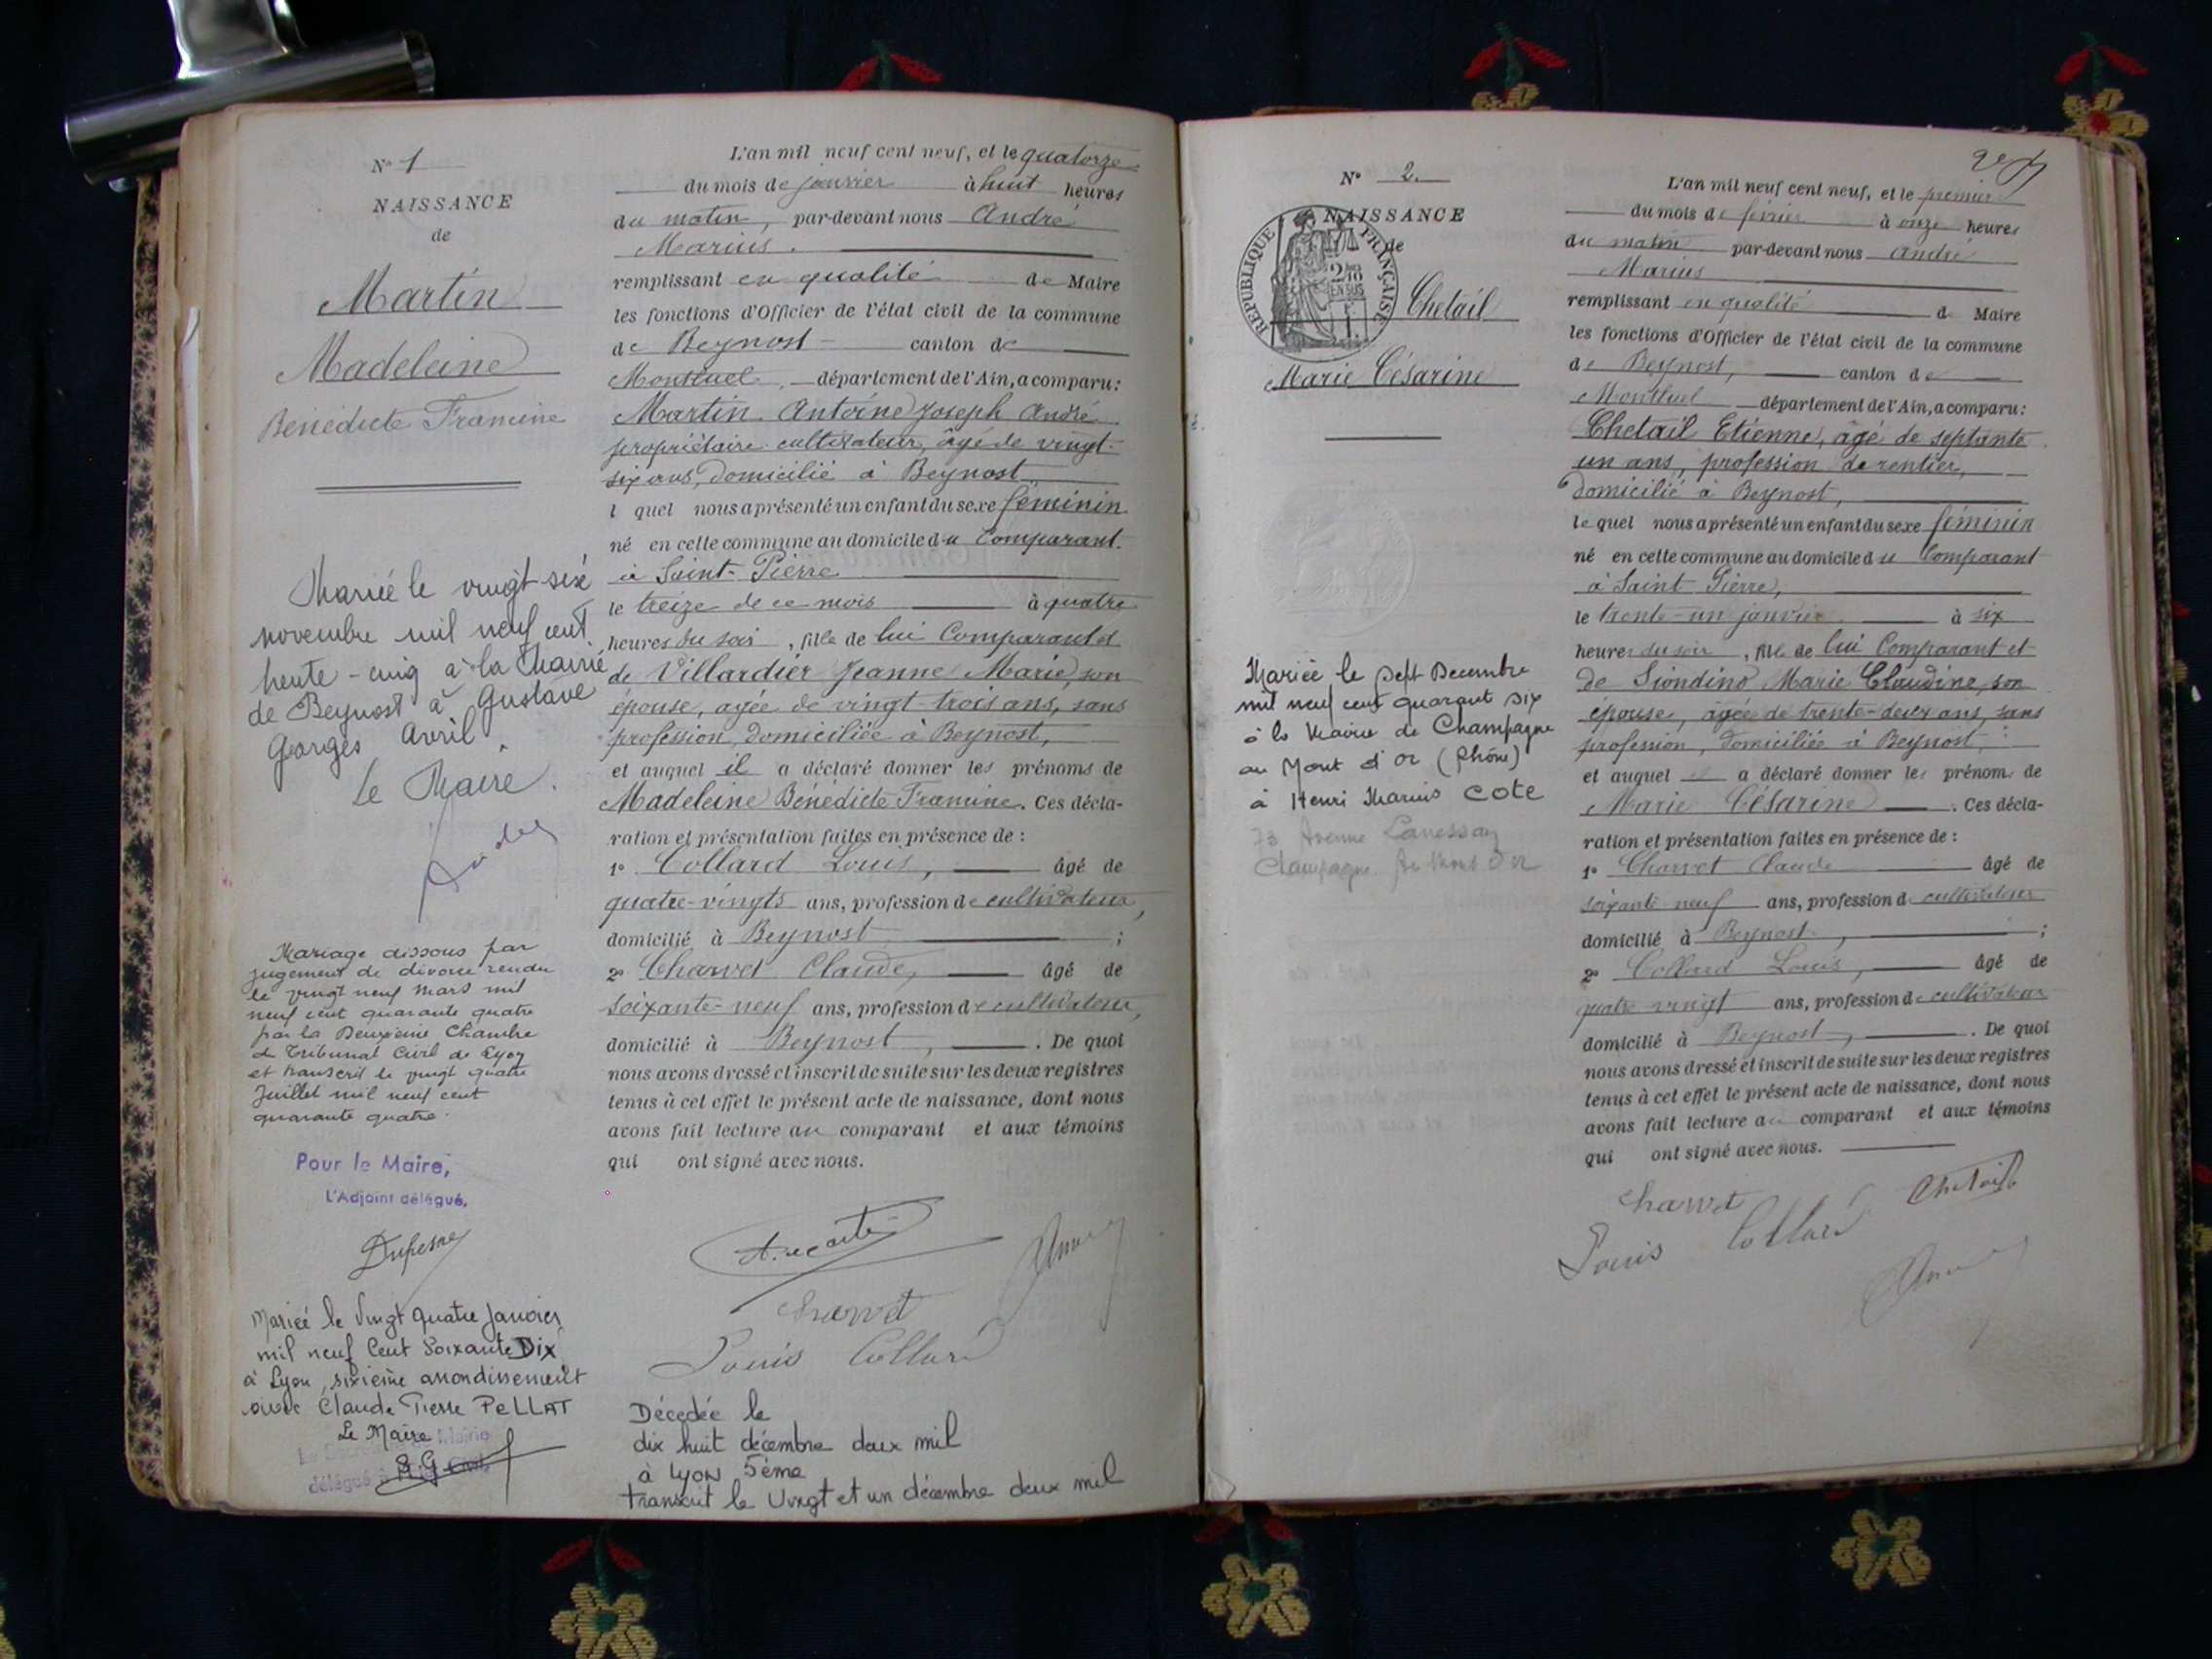 N° 1
NAISSANCE
de
Martin
Madeleine
Bénédicte Francine
Mariée le vingt six
novembre mil neuf cent
trente-cinq à la Mairie
de Beynost à Gustave
Georges Avril.
Le Maire.
Mariage dissous par
jugement de divorce rendu
le vingt neuf Mars mil
neuf cent quarante quatre
par la Deuxième Chambre
du Tribunal Civil de Lyon
et transcrit le vingt quatre
Juillet mil neuf cent
quarante quatre.
Pour le Maire,
L'Adjoint délégué,
Dufesne
Mariée le Vingt quatre Janvier
mil neuf Cent Soixante Dix
à Lyon, sixième arrondissement
avec Claude Pierre PELLAT
Le Maire
L'an mil neuf cent neuf, et le quatorze
du mois de janvier à huit heures
du matin, par-devant nous André
Marius.
remplissant en qualité de Maire
les fonctions d'Officier de l'état civil de la commune
de Beynost canton de
Montluel, département de l'Ain, a comparu:
Martin Antoine Joseph André
propriétaire cultivateur, âgé de vingt-
six ans, domicilié à Beynost
l quel nous a présenté un enfant du sexe féminin
né en cette commune au domicile du Comparant.
à Saint-Pierre
le treize de ce mois à quatre
heures du soir, fille de lui Comparant et
de Villardier Jeanne Marie, son
épouse, âgée de vingt-trois ans, sans
profession, domiciliée à Beynost,
et auquel il a déclaré donner les prénoms de
Madeleine Bénédicte Francine. Ces décla-
ration et présentation faites en présence de :
1° Collard Louis, âgé de
quatre-vingts ans, profession de cultivateur,
domicilié à Beynost ;
2° Charvet Claude, âgé de
soixante-neuf ans, profession de cultivateur,
domicilié à Beynost, . De quoi
nous avons dressé et inscrit de suite sur les deux registres
tenus à cet effet le présent acte de naissance, dont nous
avons fait lecture au comparant et aux témoins
qui ont signé avec nous.
Charvet
Louis Collard
Décédée le
dix huit décembre deux mil
à Lyon 5ème
transcrit le Vingt et un décembre deux mil
N° 2.
NAISSANCE
de
REPUBLIQUE FRANÇAISE
2/10
EN SUS
Chetail
Marie Césarine
Mariée le sept Decembre
mil neuf cent quarant six
à la Mairie de Champagne
au Mont d'or (Rhône)
à Henri Marius COTE
73 Avenue Lanessan
Champagne Au Mont d'Or
L'an mil neuf cent neuf, et le premier
du mois de février à onze heures
du matin par-devant nous André
Marius
remplissant en qualité d Maire
les fonctions d'Officier de l'état civil de la commune
de Beynost, canton de
Montluel département de l'Ain, a comparu:
Chetail Etienne, âgé de septante
un ans, profession de rentier,
domicilié à Beynost,
le quel nous a présenté un enfant du sexe féminin
né en cette commune au domicile du Comparant
à Saint-Pierre,
le trente-un janvier à six
heures du soir, fille de lui Comparant et
de Siondino Marie Claudine, son
épouse, âgée de trente-deux ans, sans
profession, domiciliée à Beynost,
et auquel a déclaré donner les prénoms de
Marie Césarine. Ces décla-
ration et présentation faites en présence de :
1° Charvet Claude âgé de
soixante-neuf ans, profession de cultivateur
domicilié à Beynost, ;
2° Collard Louis, âgé de
quatre vingt ans, profession de cultivateur
domicilié à Beynost, . De quoi
nous avons dressé et inscrit de suite sur les deux registres
tenus à cet effet le présent acte de naissance, dont nous
avons fait lecture au comparant et aux témoins
qui ont signé avec nous.
Charvet
Chetail
Louis Collard